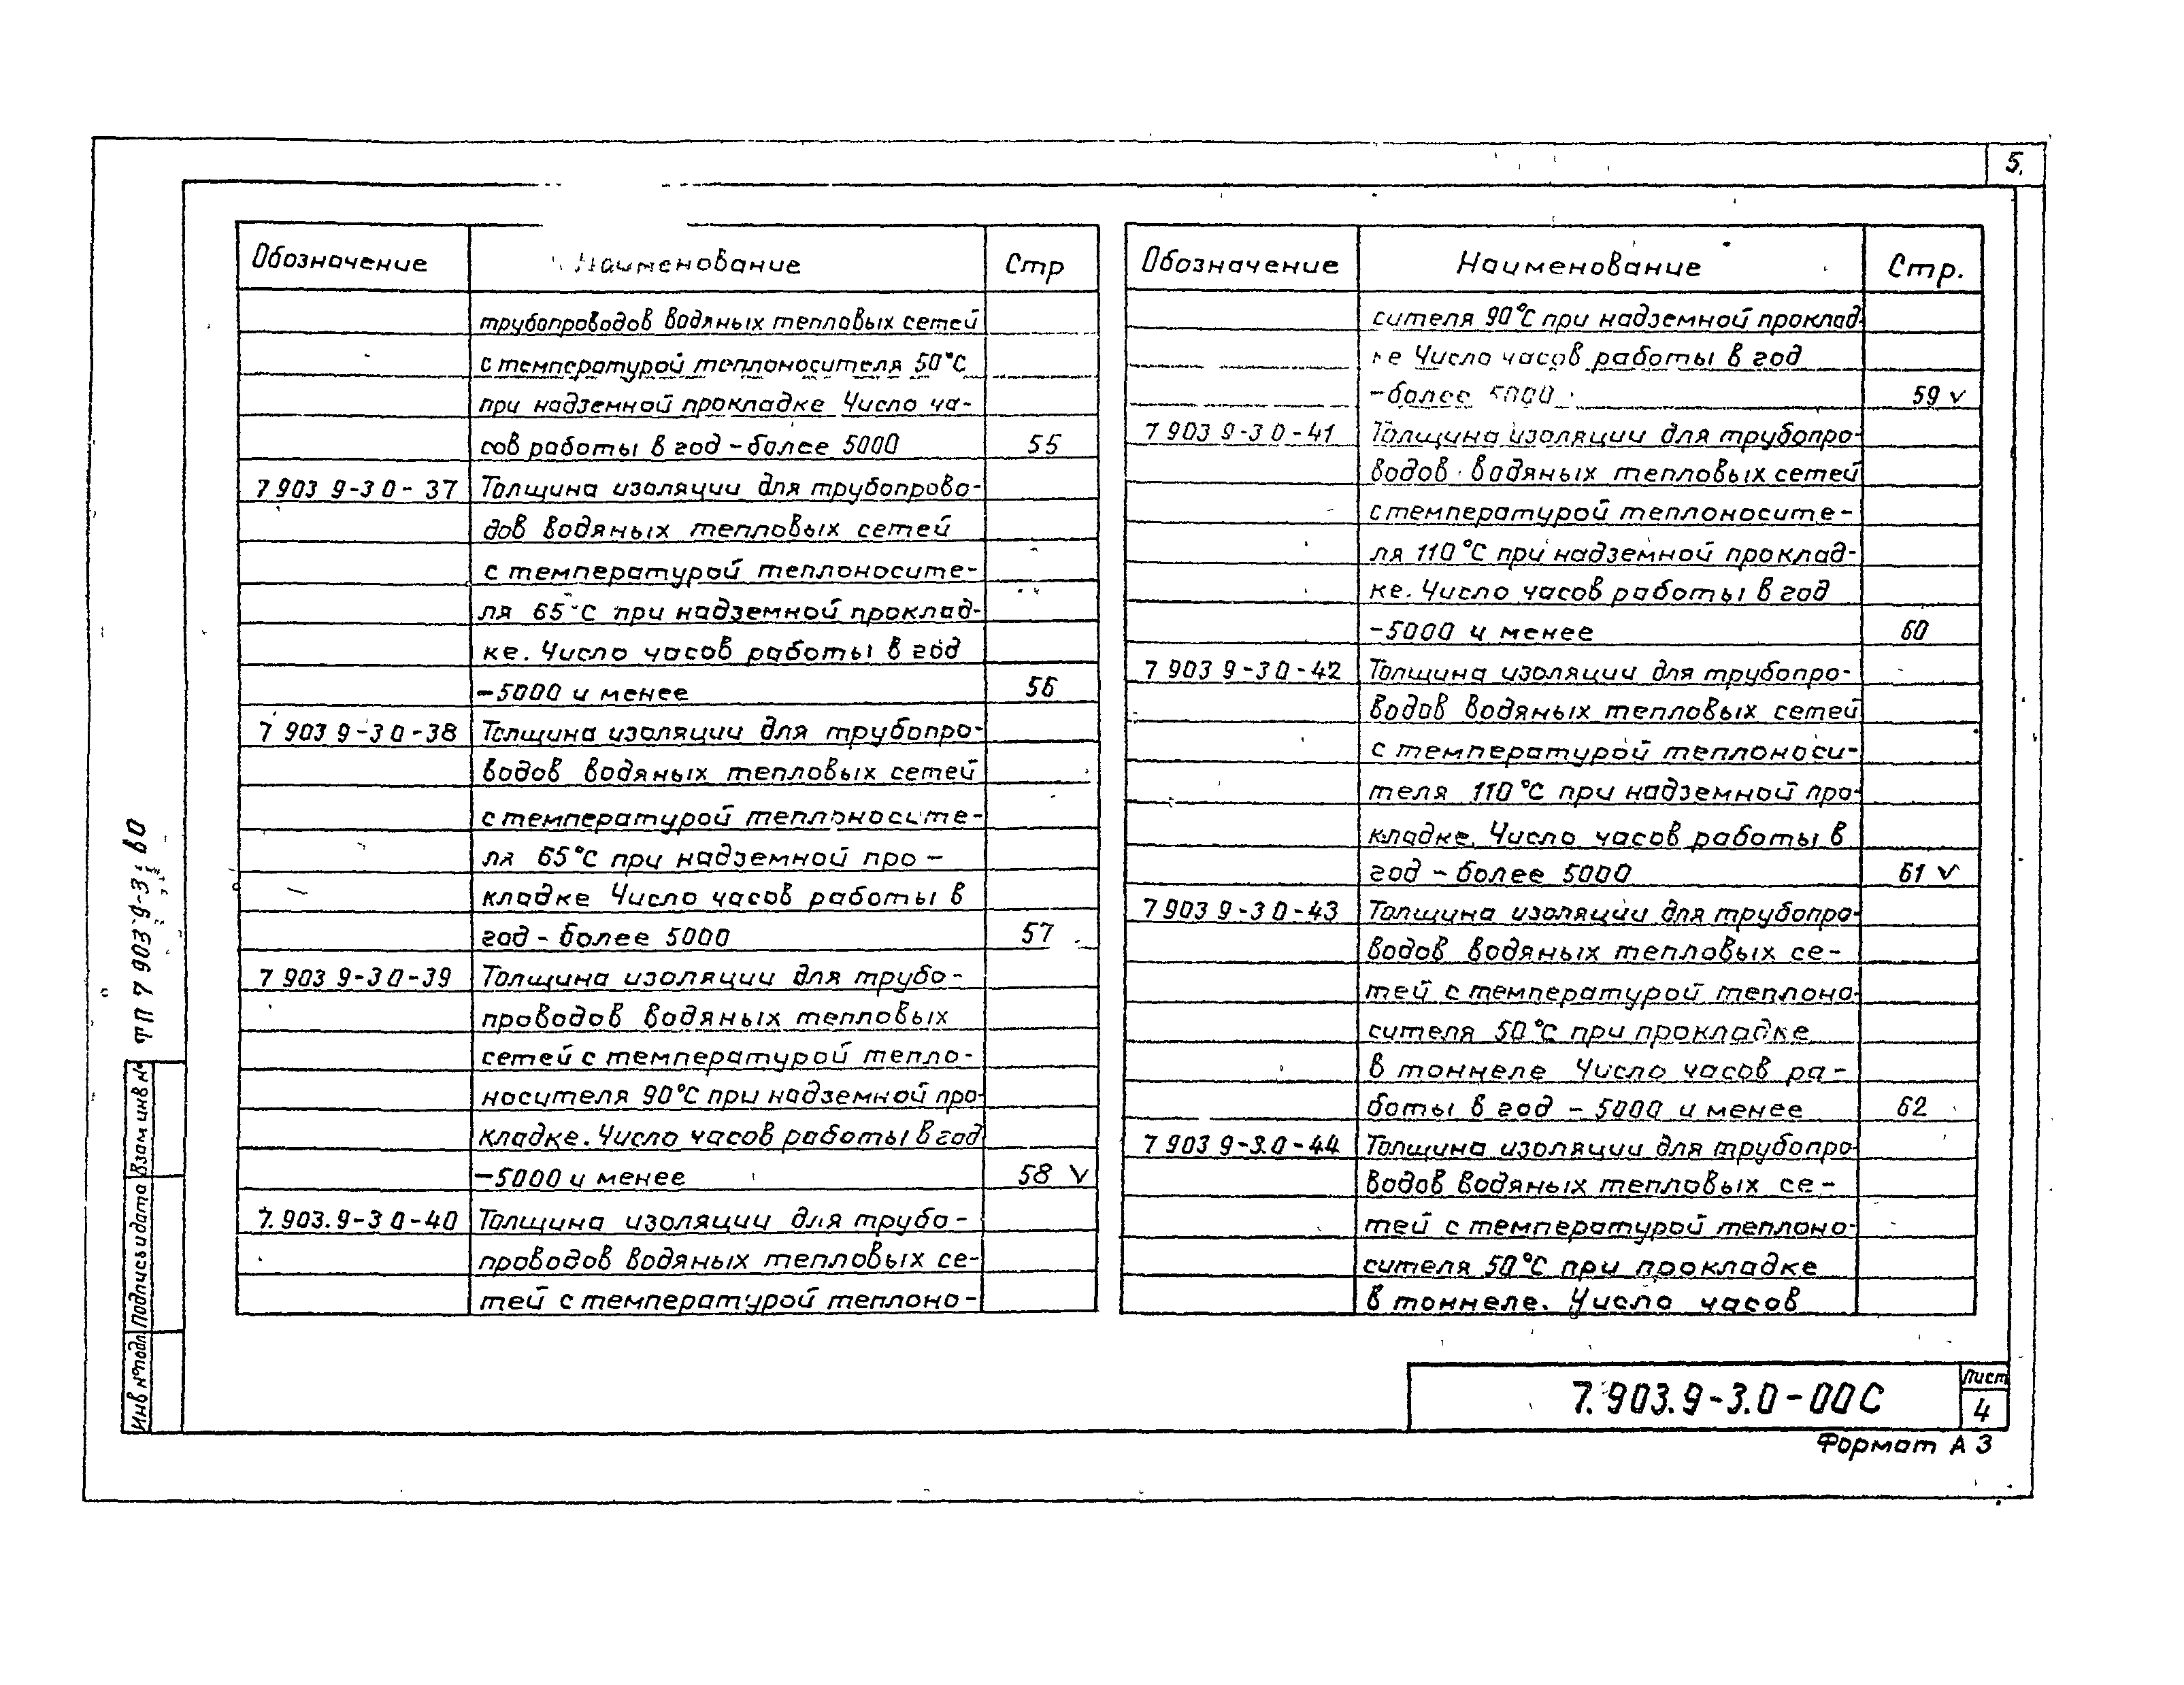 5.
Обозначение Наименование Стр
трубопроводов водяных тепловых сетей
с температурой теплоносителя 50°С
при надземной прокладке Число ча-
сов работы в год - более 5000 55
7 903 9-3 0- 37 Толщина изоляции для трубопрово-
дов водяных тепловых сетей
с температурой теплоносите-
ля 65°С при надземной проклад-
ке. Число часов работы в год
-5000 и менее 56
7 903 9-3 0-38 Толщина изоляции для трубопро-
водов водяных тепловых сетей
с температурой теплоносите-
ля 65°С при надземной про-
кладке Число часов работы в
год - более 5000 57
7 903 9-3 0-39 Толщина изоляции для трубо-
проводов водяных тепловых
сетей с температурой тепло-
носителя 90°С при надземной про-
кладке. Число часов работы в год
-5000 и менее 58 v
7.903.9-3 0-40 Толщина изоляции для трубо-
проводов водяных тепловых се-
тей с температурой теплоно-
Обозначение Наименование Стр.
сителя 90°С при надземной проклад-
ке Число часов работы в год
-более 5000 59 v
7 903 9-3 0-41 Толщина изоляции для трубопро-
водов водяных тепловых сетей
с температурой теплоносите-
ля 110°С при надземной проклад-
ке. Число часов работы в год
-5000 и менее 60
7 903 9-3 0-42 Толщина изоляции для трубопро-
водов водяных тепловых сетей
с температурой теплоноси-
теля 110°С при надземной про-
кладке. Число часов работы в
год - более 5000 61 v
7 903 9-3 0-43 Толщина изоляции для трубопро-
водов водяных тепловых се-
тей с температурой теплоно-
сителя 50°С при прокладке
в тоннеле Число часов ра-
боты в год - 5000 и менее 62
7 903 9-3.0-44 Толщина изоляции для трубопро-
водов водяных тепловых се-
тей с температурой теплоно-
сителя 50°С при прокладке
в тоннеле. Число часов
ТП 7 903 9-3 в0
Взам инв №
Подпись и дата
Инв № подл
7.903.9-3.0-00С
Лист
4
Формат А 3